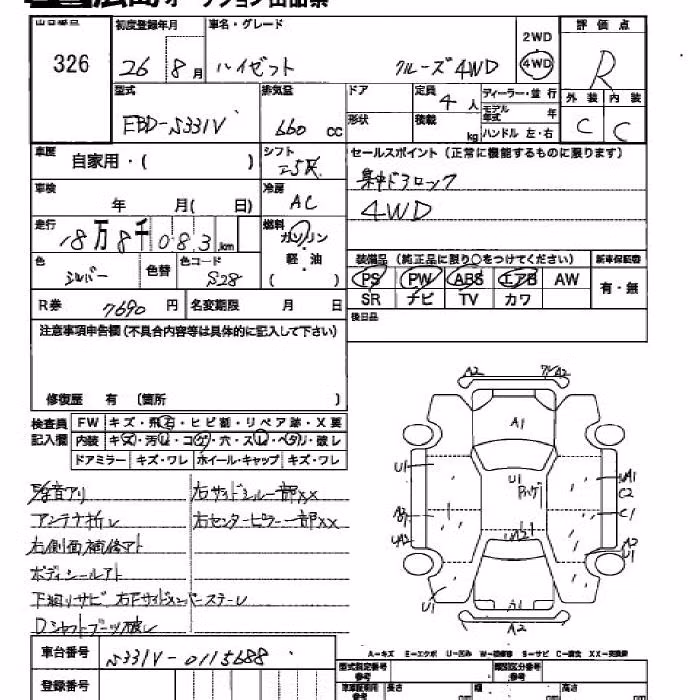 広島オークション出品票
出品番号 初度登録年月 車名・グレード 評価点
326 26年 8月 ハイゼット クルーズ4WD 2WD 4WD R
型式 排気量 ドア 定員 4人 ディーラー・並行 外装 内装
EBD-S331V 660 cc 形状 積載 kg モデル年式 年 C C
ハンドル 左・右
車歴 自家用・( ) シフト セールスポイント(正常に機能するものに限ります)
車検 年 月( 日) 冷房 AC 集中ドアロック
4WD
走行 18万8千083km 燃料 ガソリン 軽・油 ( )
装備品(純正品に限り○をつけてください) 新車保証書
色 シルバー 色替 色コード S28 PS PW ABS エアB AW 有・無
R券 7690円 名変期限 月 日 SR ナビ TV カワ
後日品
注意事項申告欄(不具合内容等は具体的に記入して下さい)
修復歴 有 〔箇所 〕
検査員記入欄 FW キズ・飛石・ヒビ割・リペア跡・X要
内装 キズ・汚レ・コゲ・穴・スレ・ベタリ・破レ
ドアミラー キズ・ワレ ホイール・キャップ キズ・ワレ
異音アリ 右サイドシル一部XX
アンテナ折レ 右センターピラー一部XX
右側面補修アト
ボディシールアト
下廻りサビ 右Fサイドメンバーステーレ
Dシャフトブーツ破レ
A2 A2
A1
U1 U1 UA1
C2
C1
UA2 UA2 U1
U1 A1
A2
A-キズ E-エクボ U-凹み W-補修跡 S-サビ C-腐食 XX-交換跡
車台番号 S331V-0115688
型式指定番号 参考 類別区分番号 参考
登録番号 長さ cm 幅 cm 高さ cm